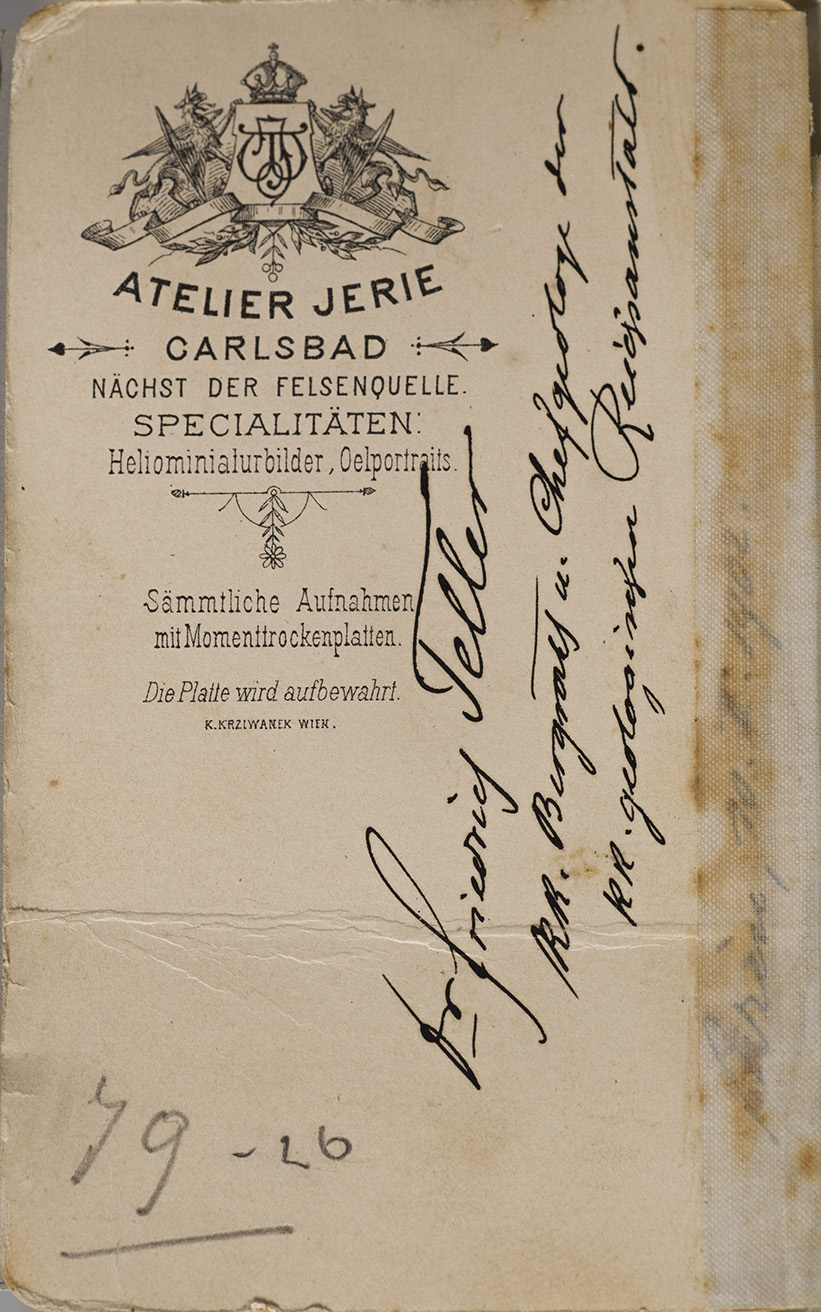 ATELIER JERIE
CARLSBAD
NÄCHST DER FELSENQUELLE.
SPECIALITÄTEN:
Heliominiaturbilder, Oelportraits.
Sämmtliche Aufnahmen
mit Momenttrockenplatten.
Die Platte wird aufbewahrt.
K. KRZIWANEK WIEN.
Dr Friedrich Teller
KK. Bergrath u. Chefgeologe der
KK. geologischen Reichsanstalt.
Wien,
79 - 26